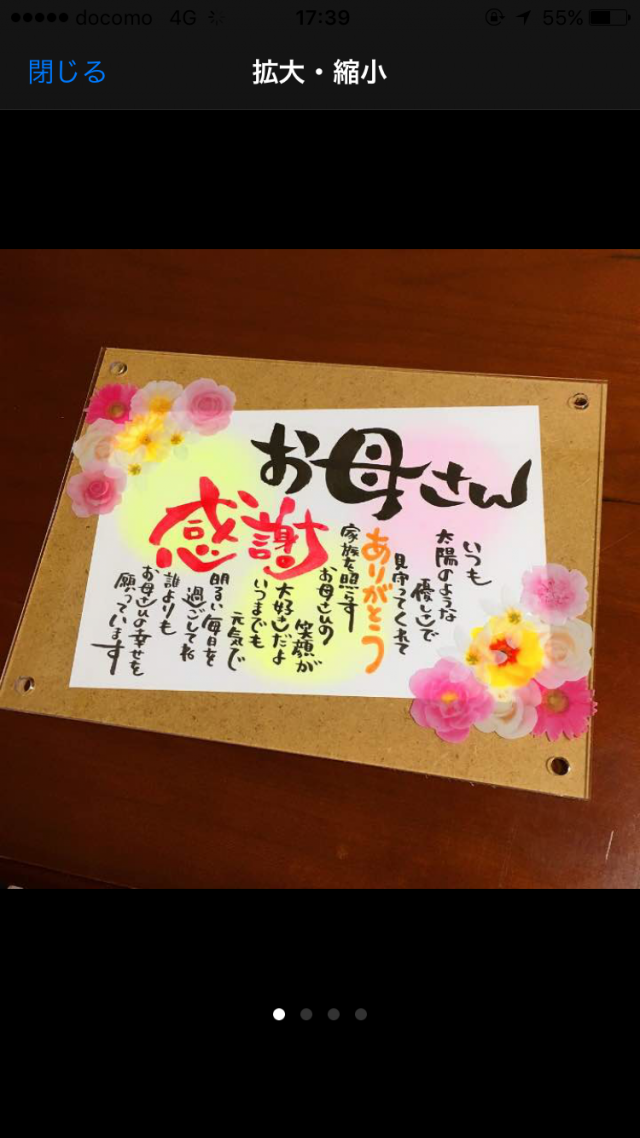 docomo 4G 17:39 55%
閉じる 拡大・縮小
お母さん
感謝
いつも
太陽のような
優しさで
見守ってくれて
ありがとう
家族を照らす
お母さんの
笑顔が
大好きだよ
いつまでも
元気で
明るい毎日を
過ごしてね
誰よりも
お母さんの幸せを
願っています